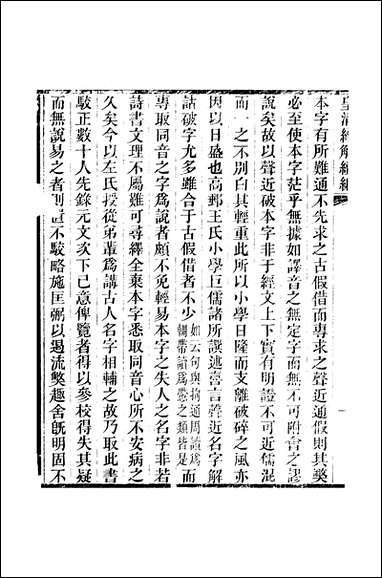 皇清經解續編
本字有所難通不先求之古假借而專求之聲近通假則其獘
必至使本字茫乎無據如譯音之無定字而無不可附會之謬
說矣故以聲近破本字非于經文上下實有明證不可近儒混
而一之不別白其輕重此所以小學日隆而支離破碎之風亦
因以日盛也高郵王氏小學巨儒諸所譔述喜言聲近名字解
詁破字尤多雖合于古假借者不少如云句與拘通周讀爲輖帶讀爲之類皆是而
專取同音之字爲說者頗不免輕易本字之失人之名字非若
詩書文理不屬難可尋繹全棄本字悉取同音心所不安病之
久矣今以左氏授從弟輩爲講古人名字相輔之故乃取此書
駮正數十人先錄元文次下己意俾覽者得以參校得失其疑
而無說易之者則置不駮略施匡弼以遏流獘趣舍旣明固不